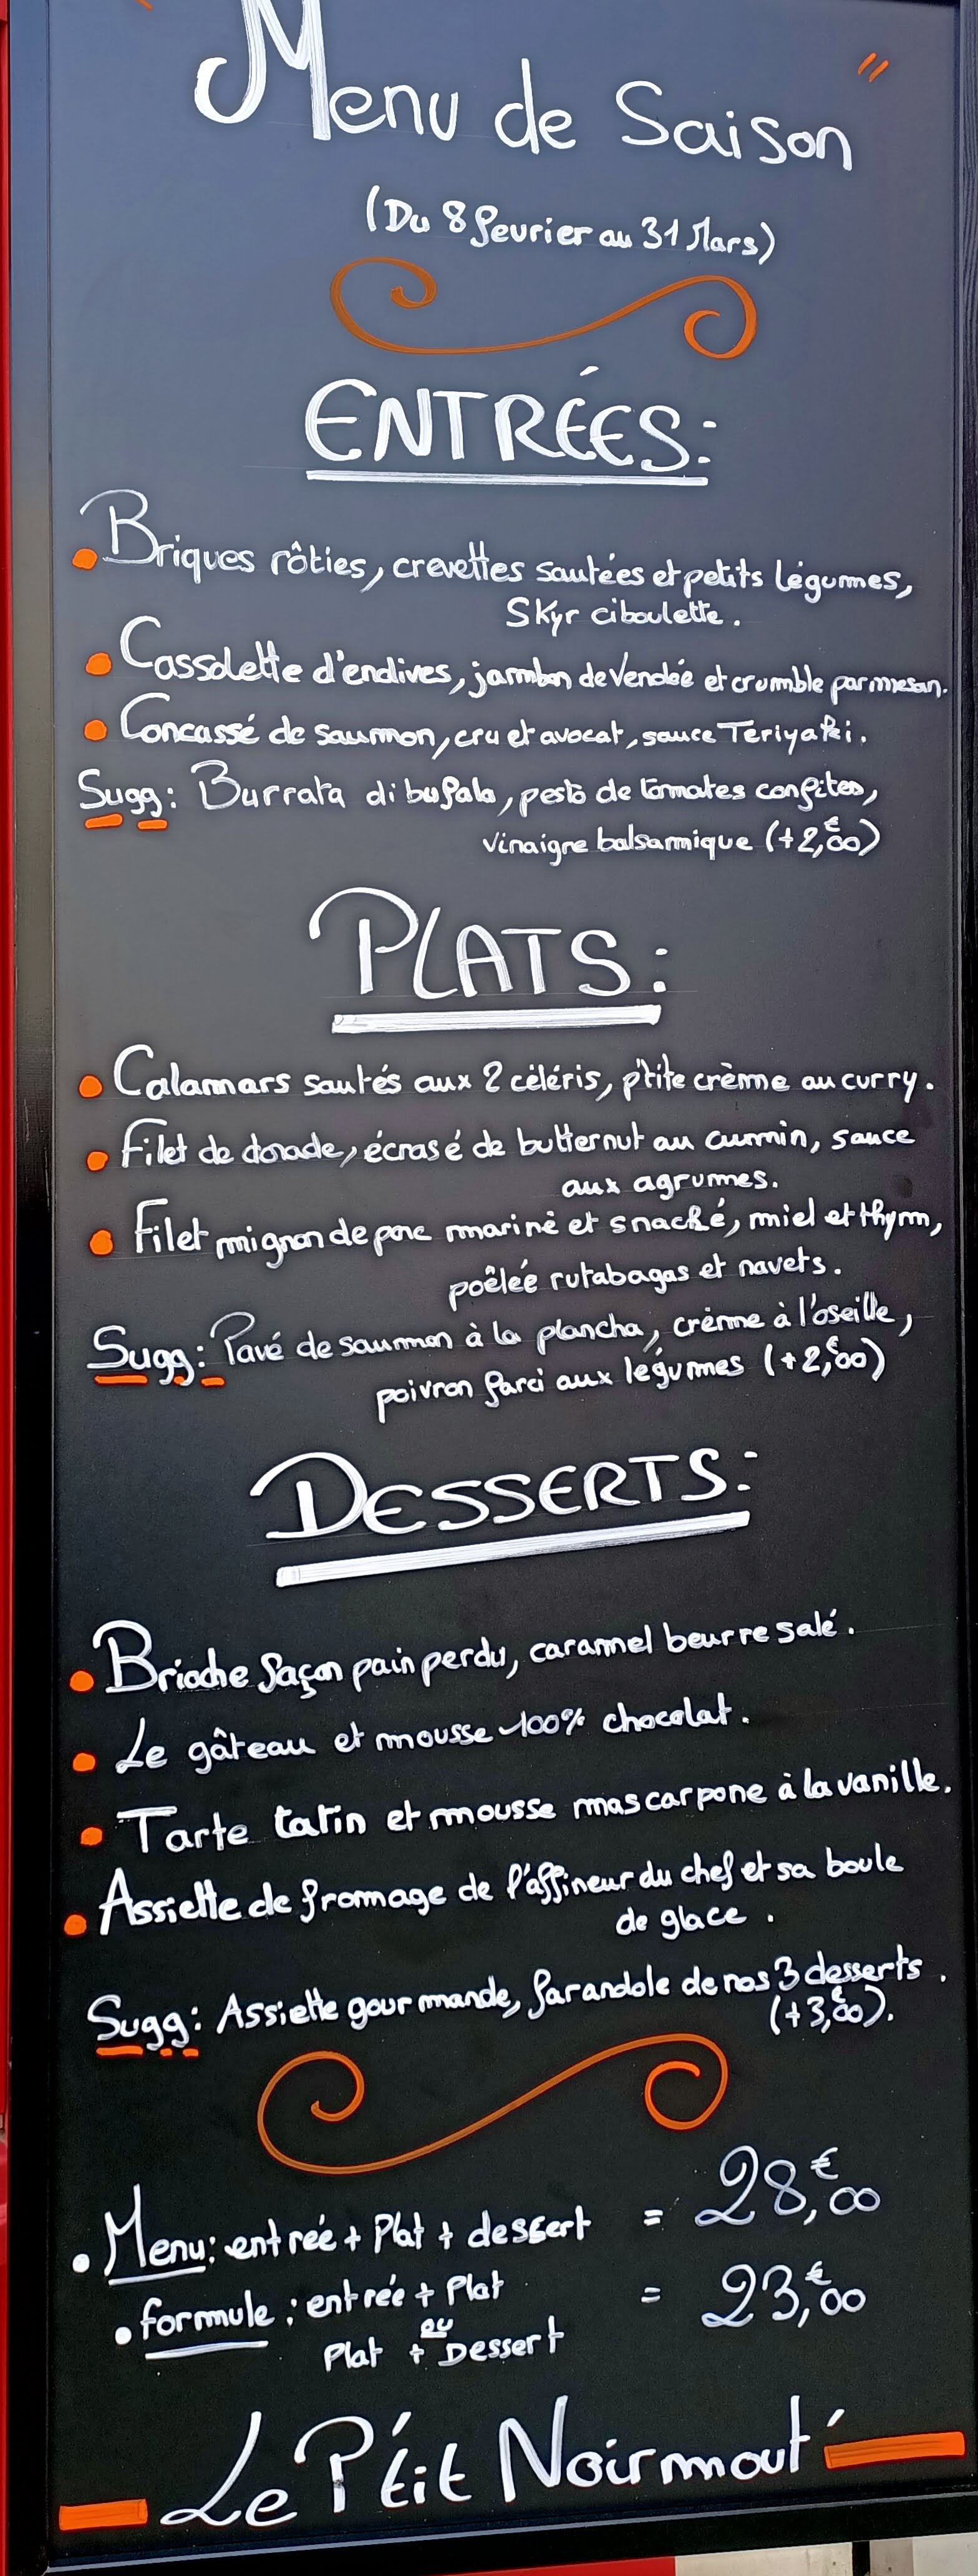 " Menu de Saison "
(Du 8 fevrier au 31 Mars)
ENTRÉES:
• Briques rôties, crevettes sautées et petits légumes,
Skyr ciboulette.
• Cassolette d'endives, jambon de Vendée et crumble parmesan.
• Concassé de saumon, cru et avocat, sauce Teriyaki.
Sugg: Burrata di bufala, pesto de tomates confites,
vinaigre balsamique (+2,€00)
PLATS:
• Calamars sautés aux 2 céléris, p'tite crème au curry.
• Filet de dorade, écrasé de butternut au cumin, sauce
aux agrumes.
• Filet mignon de porc mariné et snacké, miel et thym,
poêlée rutabagas et navets.
Sugg: Pavé de saumon à la plancha, crème à l'oseille,
poivron farci aux légumes (+2,€00)
DESSERTS:
• Brioche façon pain perdu, caramel beurre salé.
• Le gâteau et mousse 100% chocolat.
• Tarte tatin et mousse mascarpone à la vanille.
• Assiette de fromage de l'affineur du chef et sa boule
de glace.
Sugg: Assiette gourmande, farandole de nos 3 desserts.
(+3,€00).
• Menu: entrée + Plat + dessert = 28,€00
• formule: entrée + Plat = 23,€00
ou
Plat + Dessert
Le P'tit Noirmout'